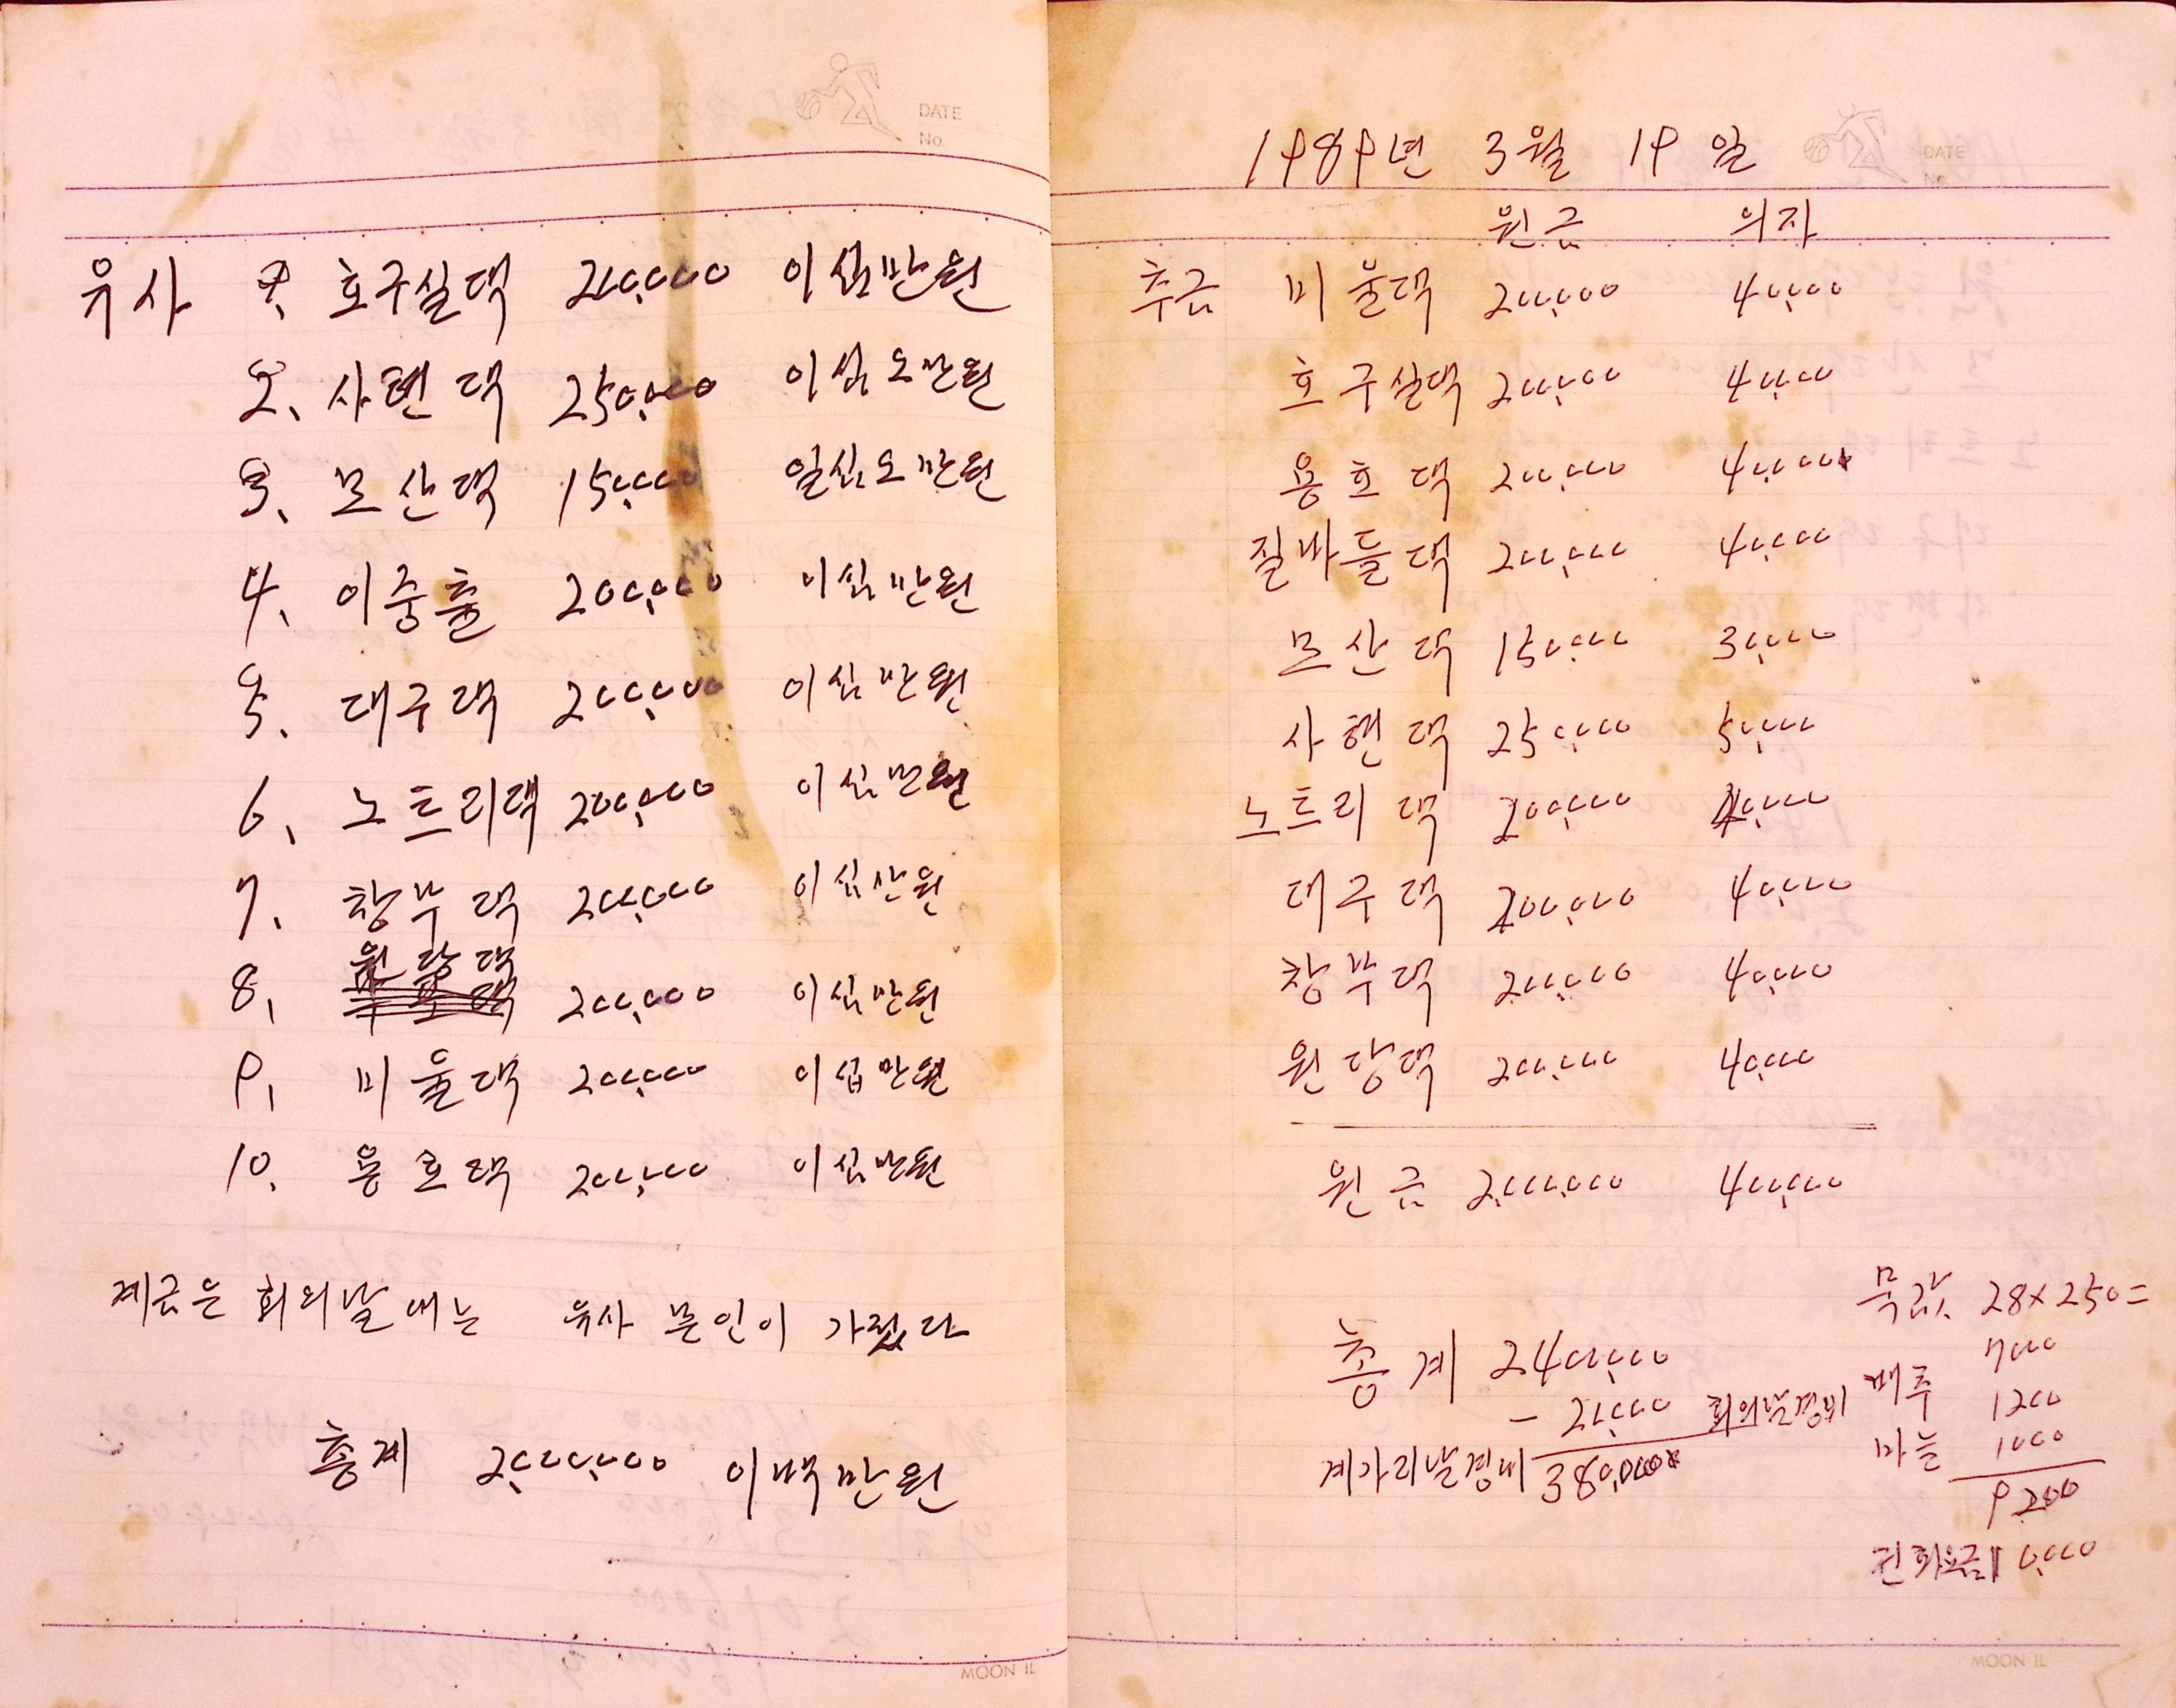 DATE
No
유사 1. 호구실댁 200,000 이십만원
2. 사핸댁 250,000 이십오만원
3. 모산댁 150,000 일십오만원
4. 이중출 200,000 이십만원
5. 대구댁 200,000 이십만원
6. 노트리댁 200,000 이십만원
7. 창부댁 200,000 이십만원
8. 원당댁 200,000 이십만원
9. 미울댁 200,000 이십만원
10. 용호댁 200,000 이십만원
계금은 회의날에는 유사 본인이 가젔다
총계 2,000,000 이백만원
MOON IL
DATE
No
1989년 3월 19일
원금 의자
추금 미울댁 200,000 40,000
호구실댁 200,000 40,000
용호댁 200,000 40,000
질바들댁 200,000 40,000
모산댁 150,000 30,000
사핸댁 250,000 50,000
노트리댁 200,000 40,000
대구댁 200,000 40,000
창부댁 200,000 40,000
원당댁 200,000 40,000
원금 2,000,000 400,000
총계 2400,000
- 20,000 회의날경비
계가리날경비 380,000
묵값 28×250=
7000
배추 1200
마늘 1000
9200
전화요금 10,000
MOON IL